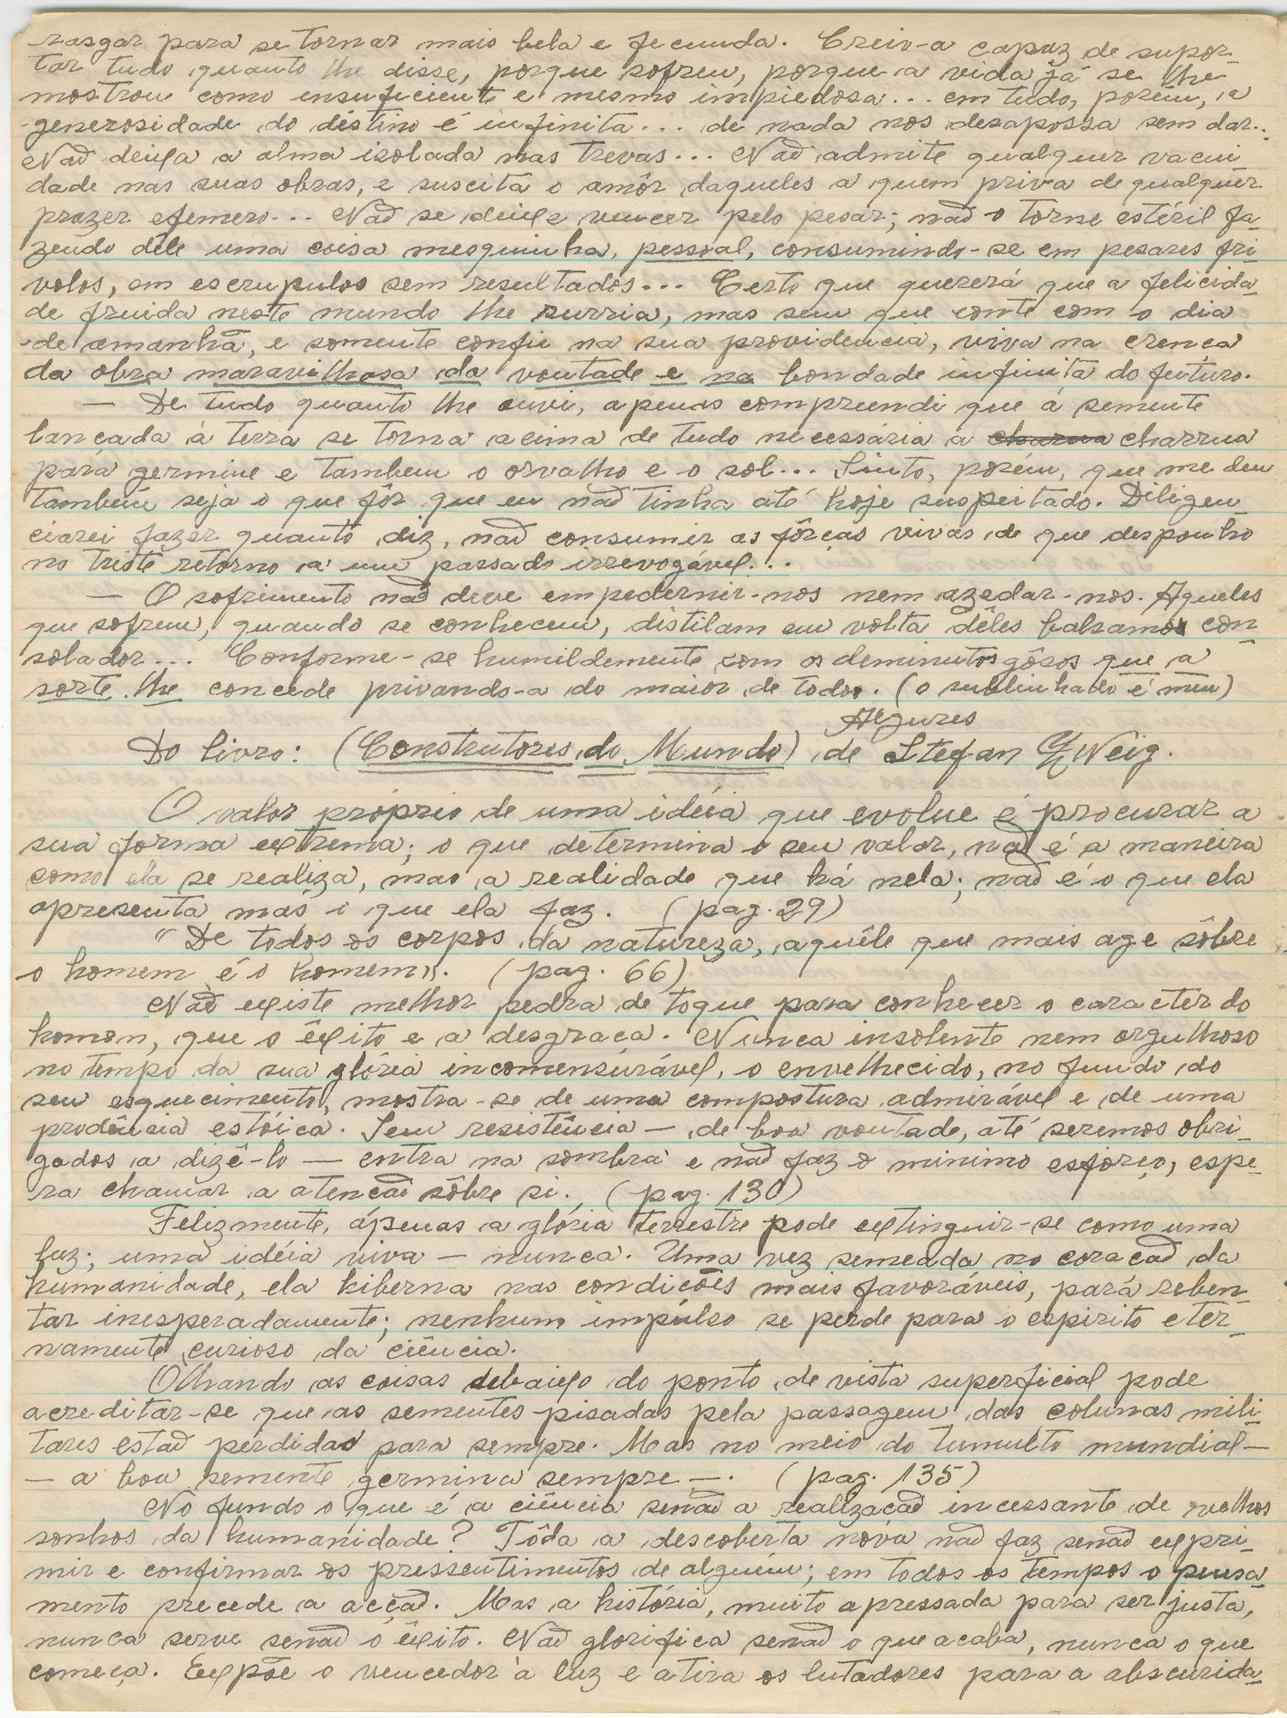 rasgar para se tornar mais bela e fecunda. Creio-a capaz de supor-
tar tudo quanto lhe disse, porque sofreu, porque a vida já se lhe
mostrou como insuficiente e mesmo impiedosa... em tudo, porém, a
generosidade do distino é infinita... de nada nos desapossa sem dar..
Não deixa a alma isolada nas trevas... Não admite qualquer vacui
dade nas suas obras, e suscita o amôr daqueles a quem priva de qualquer
prazer efemero... Não se deixe vencer pelo pesar; não o torne estéril fa-
zendo dêle uma coisa mesquinha, pessoal, consumindo-se em pesares fri-
volos, em escrupulos sem resultados... Certo que quererá que a felicida-
de fruida neste mundo lhe surria, mas sem que conte com o dia
de amanhã, e somente confie na sua providência, viva na crença
da obra maravilhosa da vontade e na bondade infinita do futuro.
— De tudo quanto lhe ouvi, apenas compreendi que á semente
lançada á terra se torna acima de tudo necessária a charua charrua
pará germine e tambem o orvalho e o sol... Sinto, porém, que me deu
tambem seja o que fôr que eu não tinha até hoje suspeitado. Diligen-
ciarei fazer quanto diz, não consumir as fôrças vivas de que desponho
no triste retorno a um passado irrevogável...
— O sofrimento não deve empedernir-nos nem azedar-nos. Aqueles
que sofrem, quando se conhecem, distilam em volta dêles balsamos con
solador... Conforme-se humildemente com os deminutos gôsos que a
sorte lhe concede privando-a do maior de todos. (o sublinhado é meu)
Algures
Do livro: (Construtores do Mundo) de Stefan Zweig.
O valor próprio de uma idéia que evolue é procurar a
sua forma extrema; o que determina o seu valor, não é a maneira
como ela se realiza, mas a realidade que há nela; não é o que ela
apresenta mas o que ela faz. (pag. 29)
"De todos os corpos da natureza, aquêle que mais age sôbre
o homem é o homem". (pag. 66)
Não existe melhor pedra de toque para conhecer o caracter do
homem, que o êxito e a desgraça. Nunca insolente nem orgulhoso
no tempo da sua glória incomensurável, o envelhecido, no fundo do
seu esquecimento, mostra-se de uma compostura admirável e de uma
prodência estóica. Sem resistência — de boa vontade, até seremos obri-
gados a dizê-lo — entra na sombra e não faz o minimo esforço, espe-
ra chamar a atenção sôbre si. (pag. 130)
Felizmente, ápenas a glória terrestre pode extinguir-se como uma
luz; uma idéia viva — nunca. Uma vez semeada no coração da
humanidade, ela hiberna nas condições mais favoráveis, pará reben-
tar inesperadamente; nenhum impulso se perde para o espirito eter-
namente curioso da ciência.
Olhando as coisas debaixo do ponto de vista superficial pode
acreditar-se que as sementes pisadas pela passagem das colunas mili-
tares estão perdidas para sempre. Mas no meio do tumulto mundial —
— a boa semente germina sempre —. (pag. 135)
No fundo o que é a ciência senão a realização incessante de velhos
sonhos da humanidade? Tôda a descoberta nova não faz senão expri-
mir e confirmar os pressentimentos de alguém; em todos os tempos o pensa
mento precede a acção. Mas a história, muito apressada para ser justa,
nunca serve senão o êxito. Não glorifica senão o que acaba, nunca o que
começa. Expõe o vencedor á luz e atira os lutadores para a abscurida-